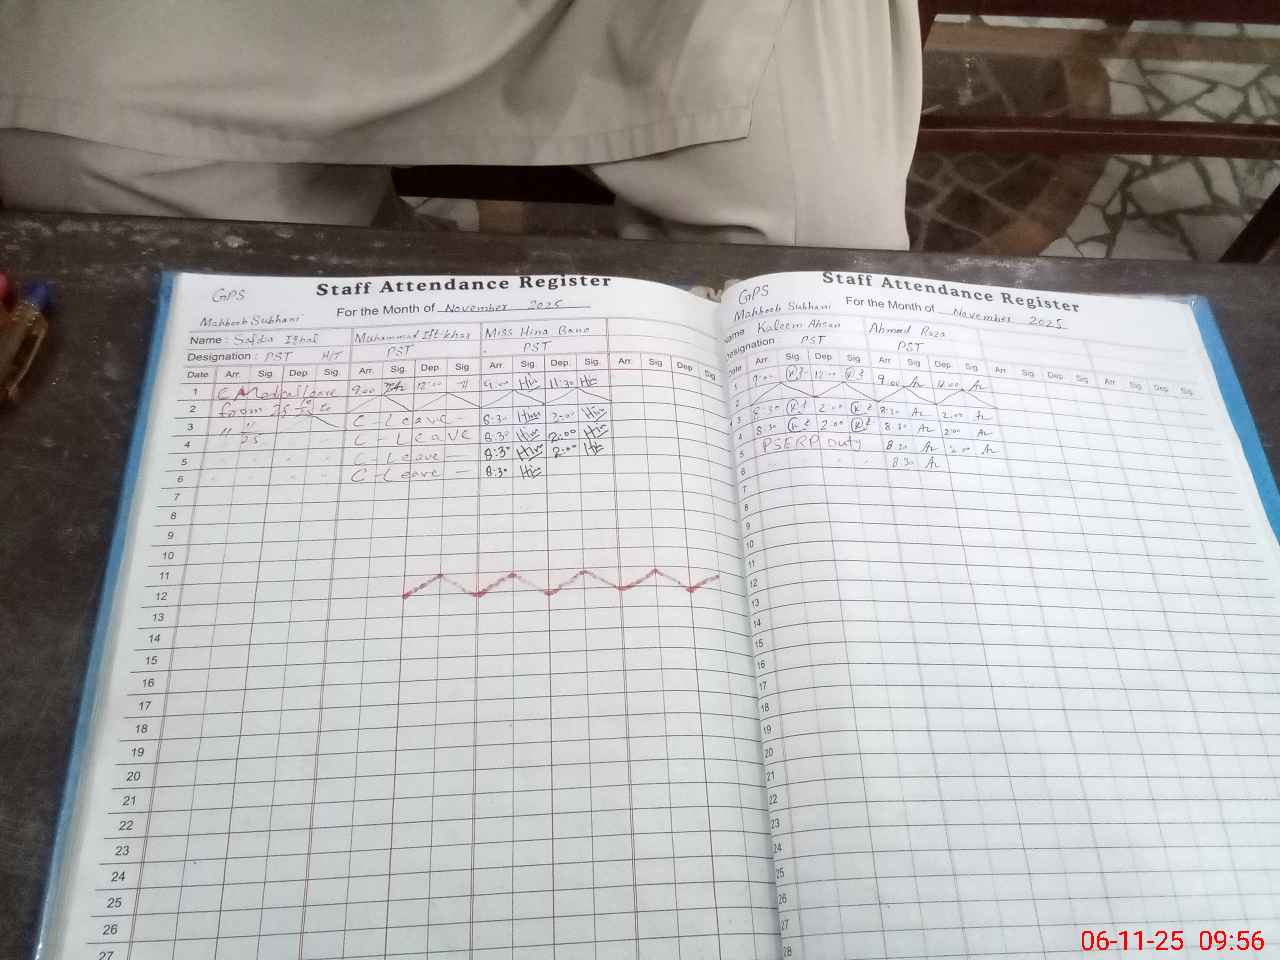 GPS
Staff Attendance Register
Mahboob Subhani
For the Month of November 2025
Name : Safdar Iqbal Muhammad Iftikhar Miss Hina Bano
Designation : PST H/T PST PST
Date Arr. Sig. Dep. Sig. Arr. Sig. Dep. Sig. Arr. Sig. Dep. Sig. Arr. Sig. Dep. Sig.
1 Medical Leave 9:00 12:00 9:00 Hin 11:30 Hin
2 from 25-10 to
3 " " C - Leave - 8:30 Hina 2:00 Hin
4 25. C - Leave 8:30 Hin 2:00 Hin
5 C - Leave - 8:30 Hin 2:00 Hin
6 C - Leave - 8:30 Hin
7
8
9
10
11
12
13
14
15
16
17
18
19
20
21
22
23
24
25
26
27
GPS
Staff Attendance Register
Mahboob Subhani
For the Month of November 2025
Name Kaleem Ahsan Ahmad Raza
Designation : PST PST
Date Arr. Sig. Dep. Sig. Arr. Sig. Dep. Sig. Arr. Sig. Dep. Sig. Arr. Sig. Dep. Sig.
1 9:00 12:00 9:00 Ar 12:00 Ar
2
3 8:30 2:00 8:30 Ar 2:00 Ar
4 8:30 2:00 8:30 Ar 2:00 Ar
5 PSERP Duty 8:30 Ar 2:00 Ar
6 8:30 Ar
7
8
9
10
11
12
13
14
15
16
17
18
19
20
21
22
23
24
25
26
27
28
06-11-25 09:56